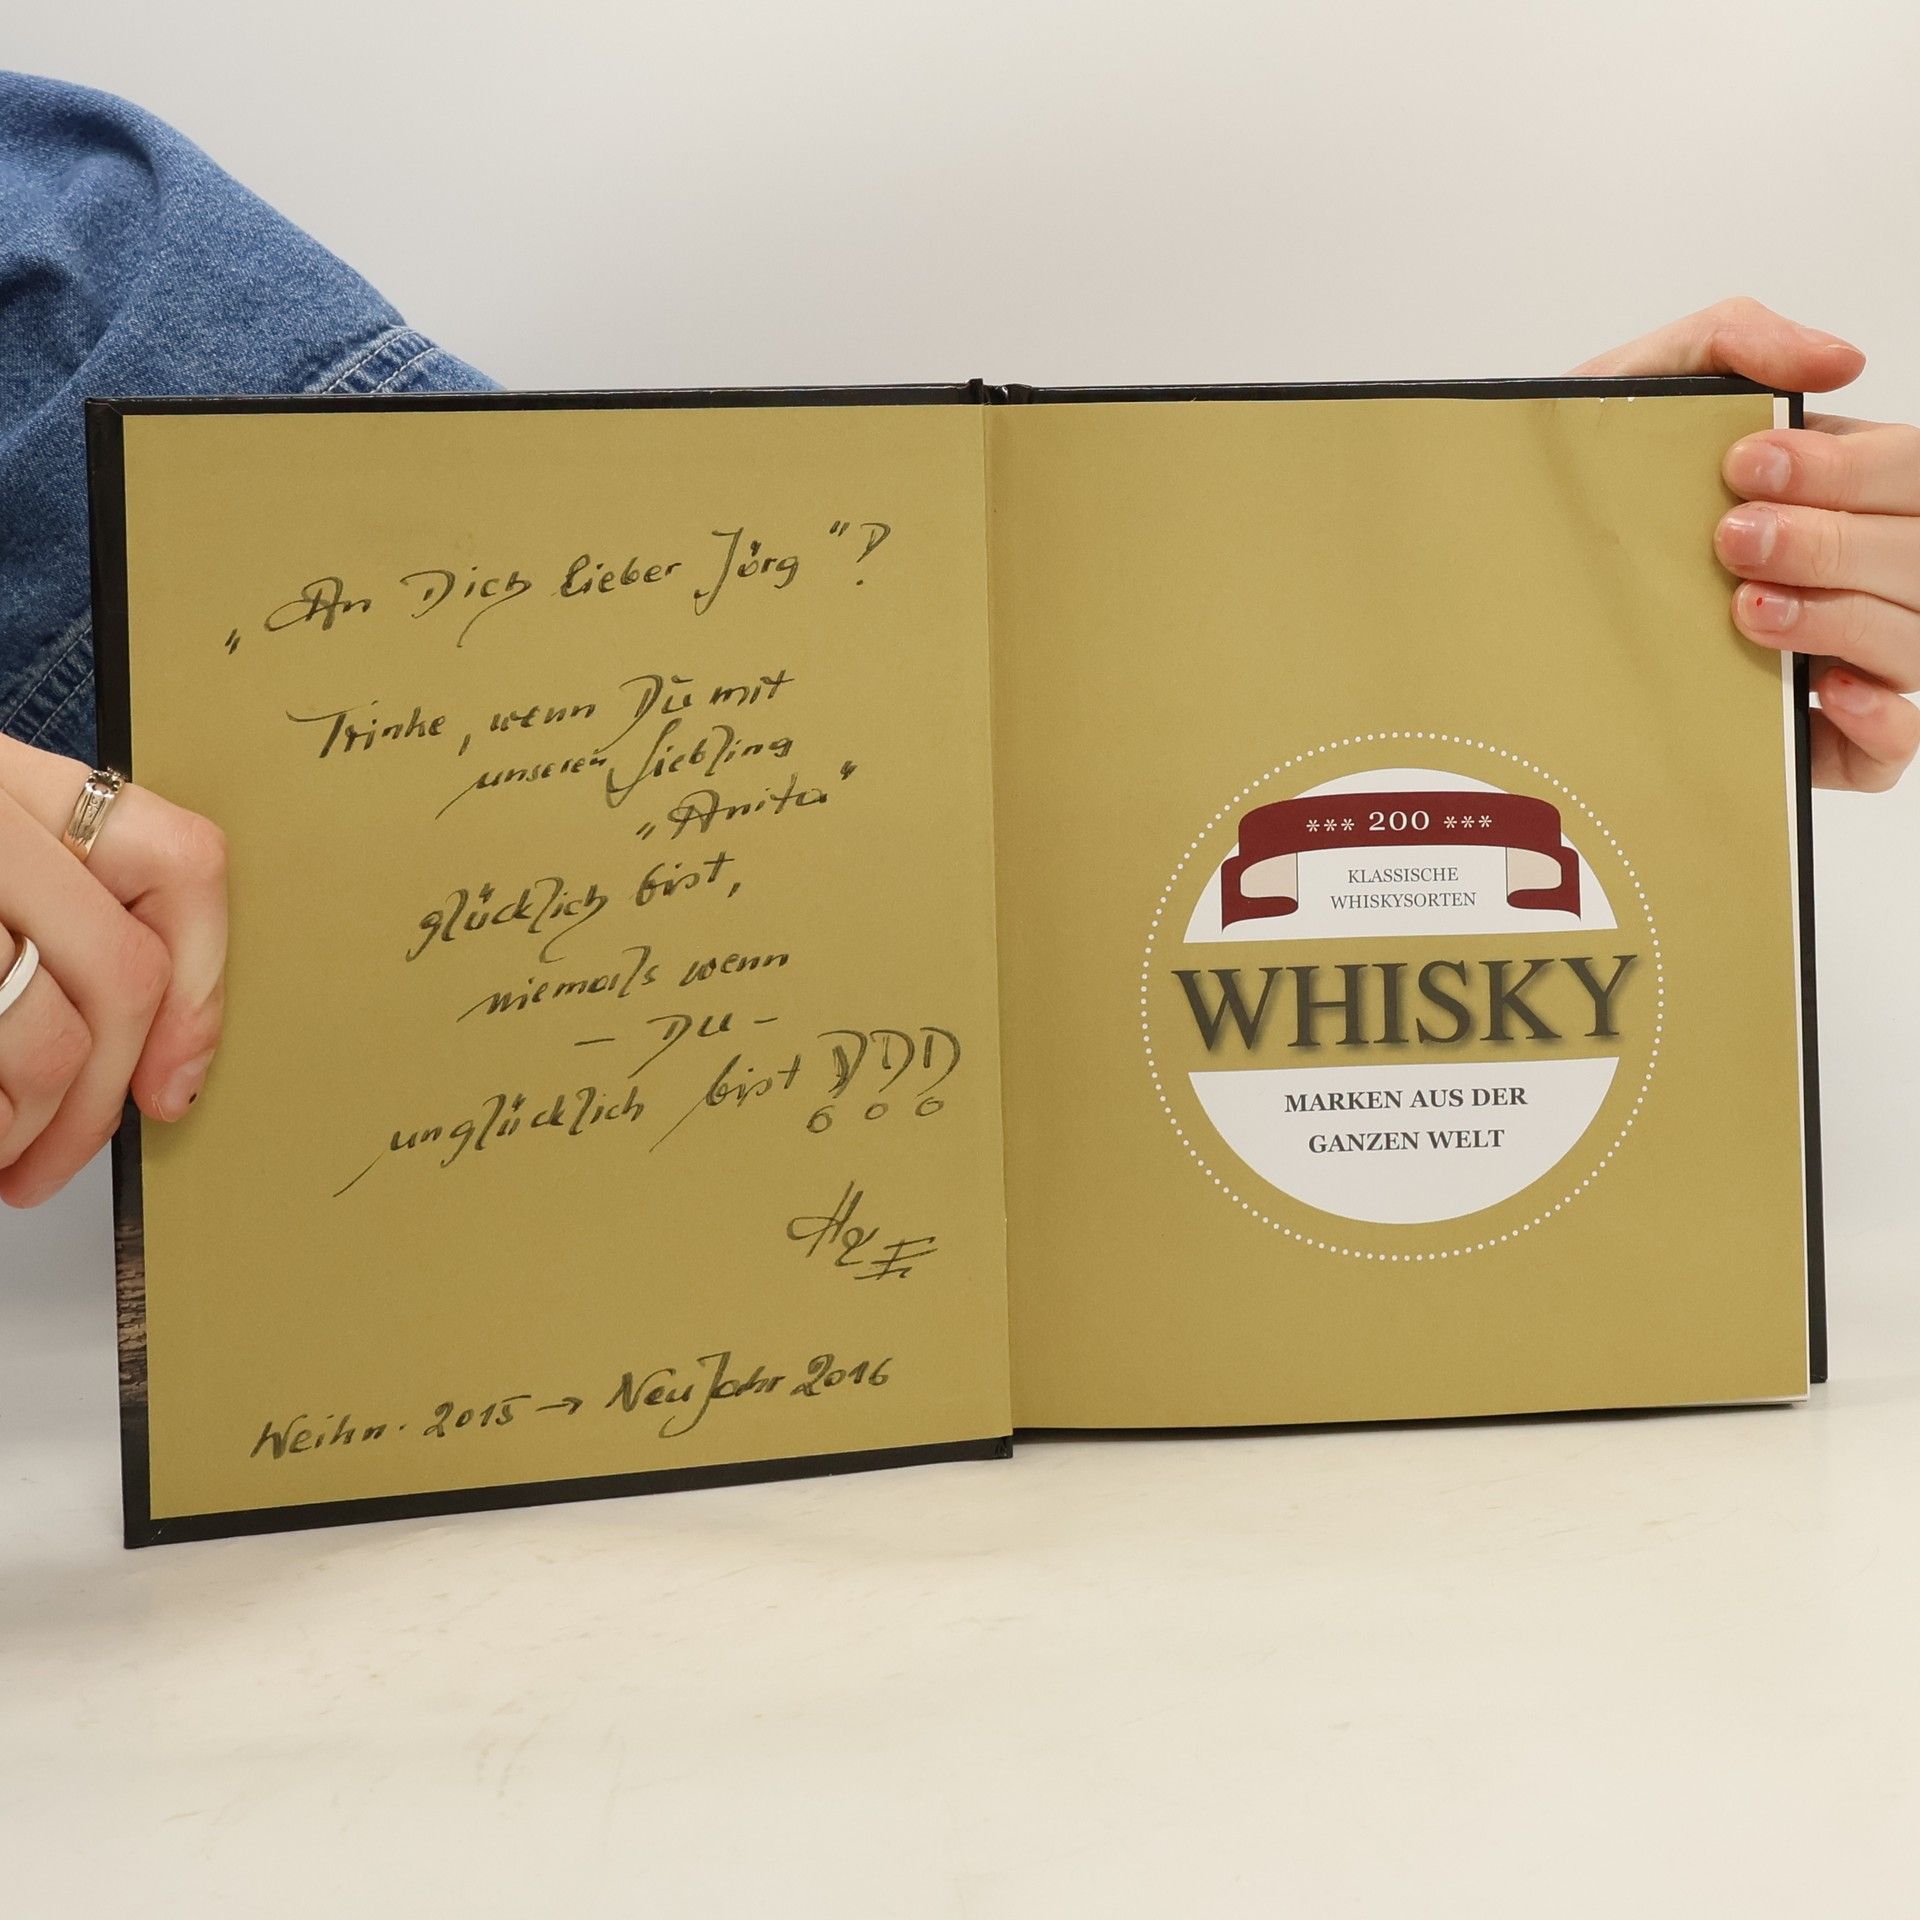 „An Dich lieber Jörg"!
Trinke, wenn Du mit
unseren Liebling
„Anita"
glücklich bist,
niemals wenn
– Du –
unglücklich bist !!!
Weihn. 2015 → NeuJahr 2016
*** 200 ***
KLASSISCHE
WHISKYSORTEN
WHISKY
MARKEN AUS DER
GANZEN WELT